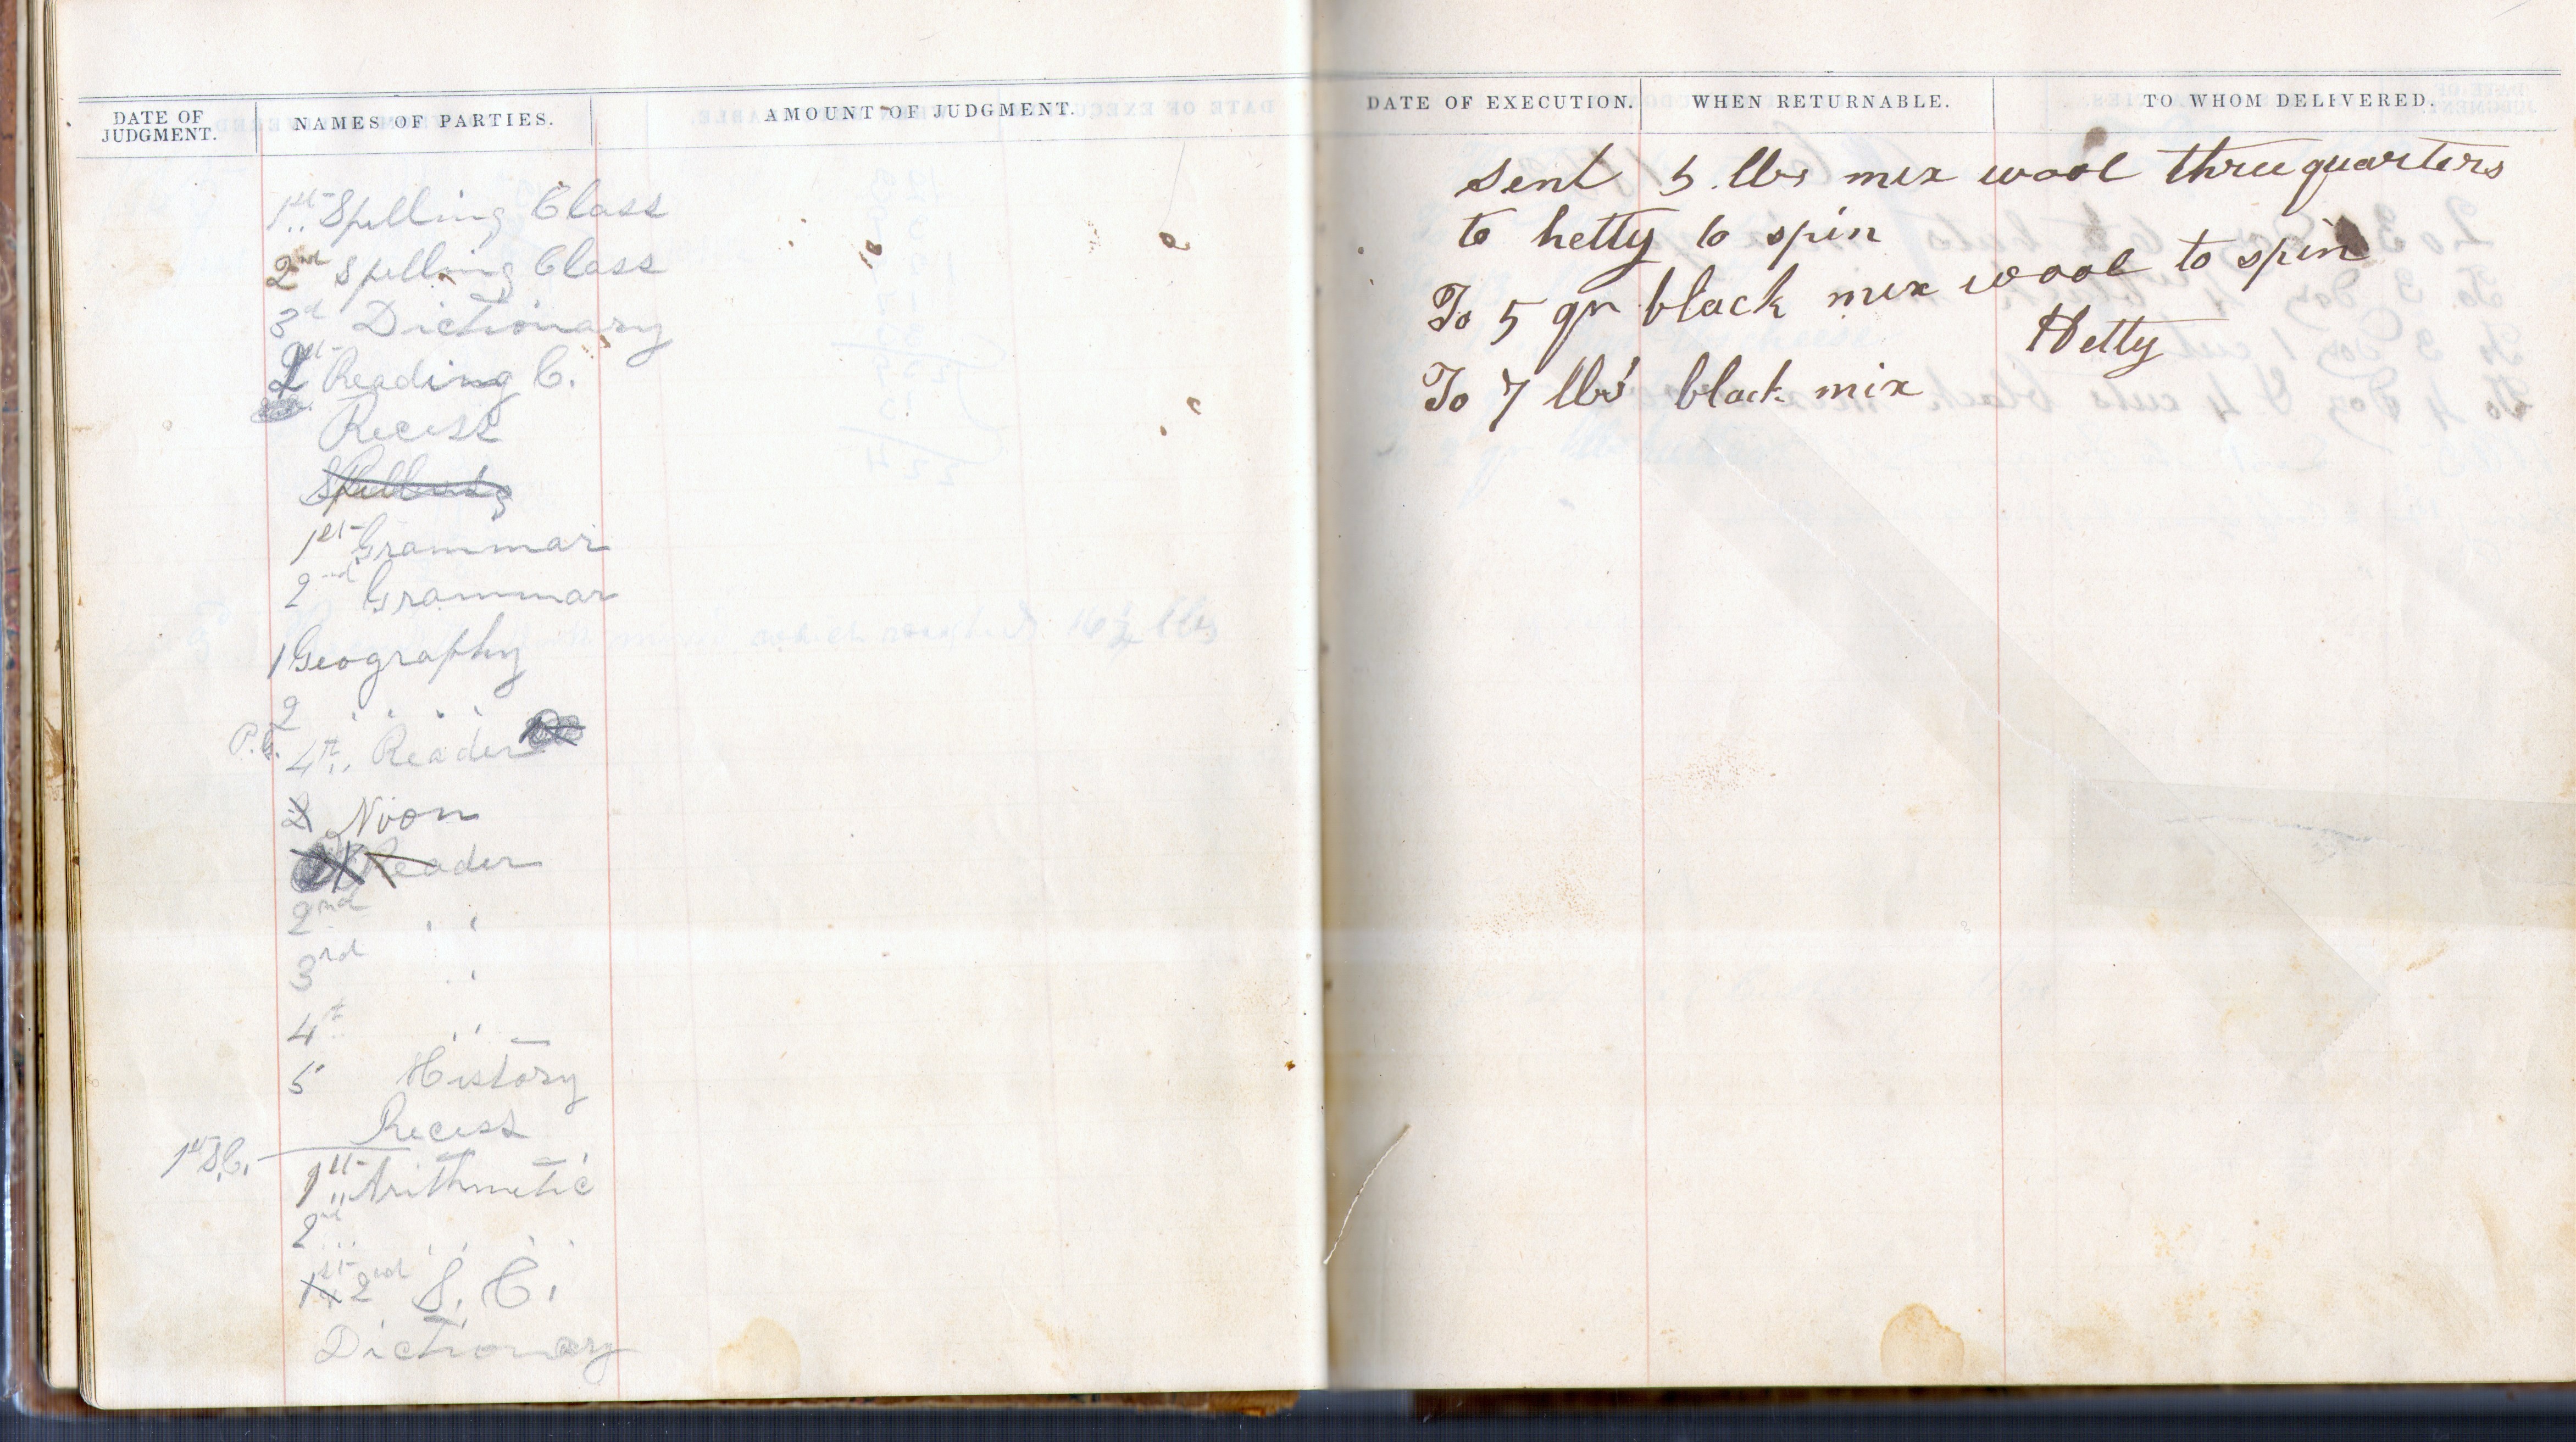 DATE OF JUDGMENT.
NAMES OF PARTIES.
AMOUNT OF JUDGMENT.
1st Spelling Class
2nd Spelling Class
3d Dictionary
1st Reading C.
Recess
Spelling
1st Grammar
2nd Grammar
1 Geography
2 " " " "
P.C. 4th Reader
2 Noon
Reader
2nd " "
3rd "
4th "
5 History
Recess
1st S.C.
1st Arithmetic
2nd " " " "
1st 2nd S. C.
Dictionary
which 16½ lbs
DATE OF EXECUTION.
WHEN RETURNABLE.
TO WHOM DELIVERED.
sent 5 lbs mix wool three quarters
to hetty to spin
To 5 qr black mix wool to spin
Hetty
To 7 lbs black mix